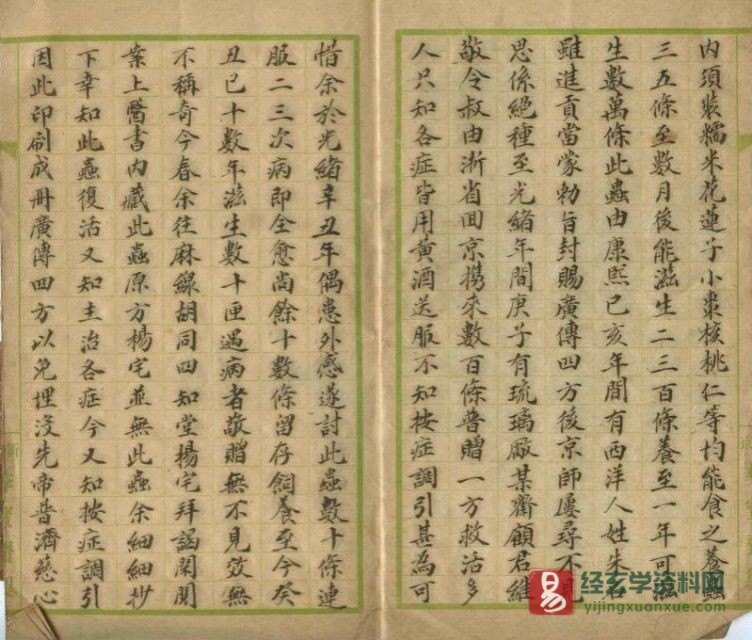 內須裝糯米花蓮子小棗核桃仁等均能食之養蟲
三五條至數月後能滋生二三百條養至一年可滋
生數萬條此蟲由康熙己亥年間有西洋人姓朱名
雖進貢當蒙勅旨封賜廣傳四方後京師屢尋不見
恐係絕種至光緒年間庚子有琉璃廠某齋顧君維
敬令叔由浙省回京携來數百條普贈一方救活多
人只知各症皆用黄酒送服不知按症調引甚為可
惜余於光緒辛丑年偶患外感遂討此蟲數十條連
服二三次病即全愈尚餘十數條留存飼養至今癸
丑已十數年滋生數十匣遇病者敬贈無不見效無
不稱奇今春余往麻線胡同四知堂楊宅拜謁閑閱
案上醫書內藏此蟲原方楊宅並無此蟲余細細抄
下幸知此蟲復活又知主治各症今又知按症調引
因此印刷成冊廣傳四方以免埋沒先帝普濟慈心
易 经玄学资料网
yijingxuanxue.com